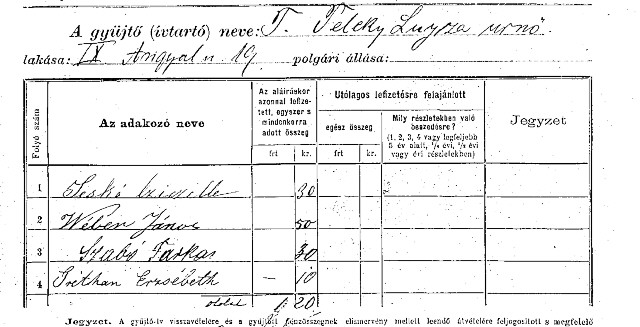 A gyüjtő (ívtartó) neve: T. Teleky Luyza urnő
lakása: IX Angyal u 19. polgári állása:
Folyó szám
Az adakozó neve
Az aláiráskor azonnal lefizetett, egyszer s mindenkorra adott összeg
Utólagos lefizetésre felajánlott
Jegyzet
egész összeg
Mily részletekben való esedezésre?
(1, 2, 3, 4 vagy legfeljebb 5 év alatt, ¹/₄ évi, ¹/₂ évi vagy évi részletekben)
frt kr. frt kr.
1 30
2 Weber János 50
3 Szabó Farkas 30
4 Erzsébeth — 10
oldal 1 20
Jegyzet. A gyüjtő-ív visszavételére és a gyüjtött pénzösszegnek elismervény mellett leendő átvételére feljogosított s megfelelő